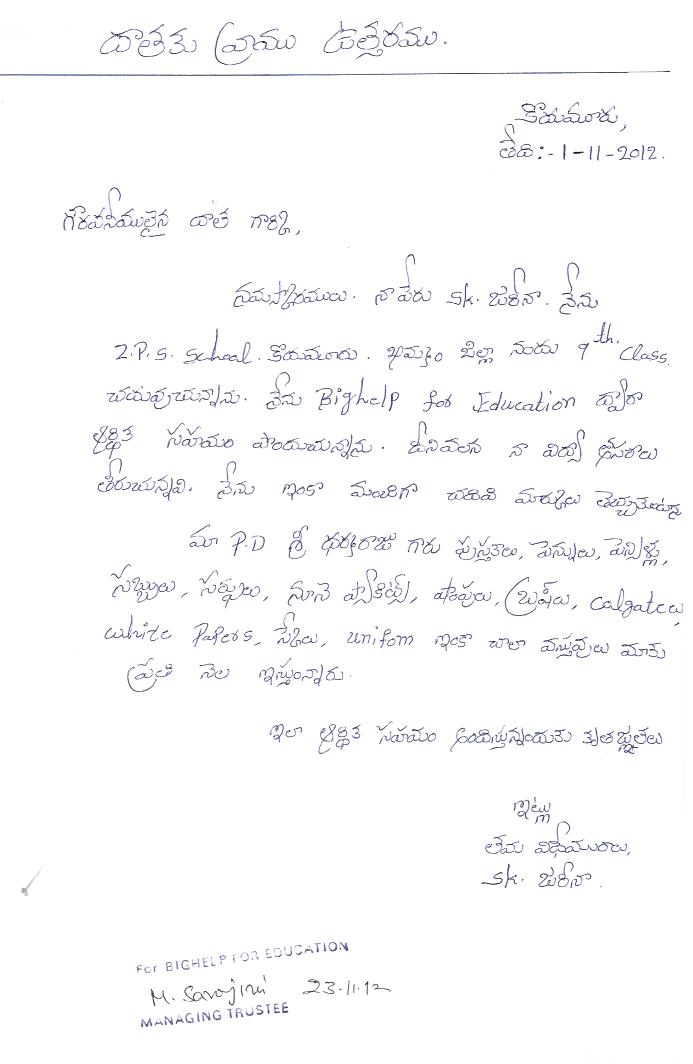 దాతకు వ్రాయు ఉత్తరము.
కొయమూరు,
తేది:- 1-11-2012.
గౌరవనీయులైన దాత గార్కి,
నమస్కారములు. నా పేరు SK. జరీనా. నేను
Z.P.S. School. కొయమూరు. ఖమ్మం జిల్లా నందు 9th. Class.
చదువుచున్నాను. నేను Bighelp for Education ద్వారా
ఆర్థిక సహయం పొందుచున్నాను. దీనివలన నా విద్యా అవసరాలు
తీరుచున్నవి. నేను ఇంకా మంచిగా చదివి మార్కులు తెచ్చుకుంటాను
మా P.D శ్రీ ధర్మరాజు గారు పుస్తకాలు, పెన్నులు, పెన్సిళ్ళు,
సబ్బులు, సర్ఫులు, నూనె ప్యాకెట్స్, షాంపులు, బ్రష్‌లు, Colgateలు,
White Papers, స్కేలు, unifom ఇంకా చాలా వస్తువులు మాకు
ప్రతి నెల ఇస్తున్నారు.
ఇలా ఆర్థిక సహయం అందిస్తున్నందుకు కృతజ్ఞతలు
ఇట్లు
తమ విధేయురాలు,
SK. జరీనా.
For BIGHELP FOR EDUCATION
M. Sarojini 23.11.12
MANAGING TRUSTEE